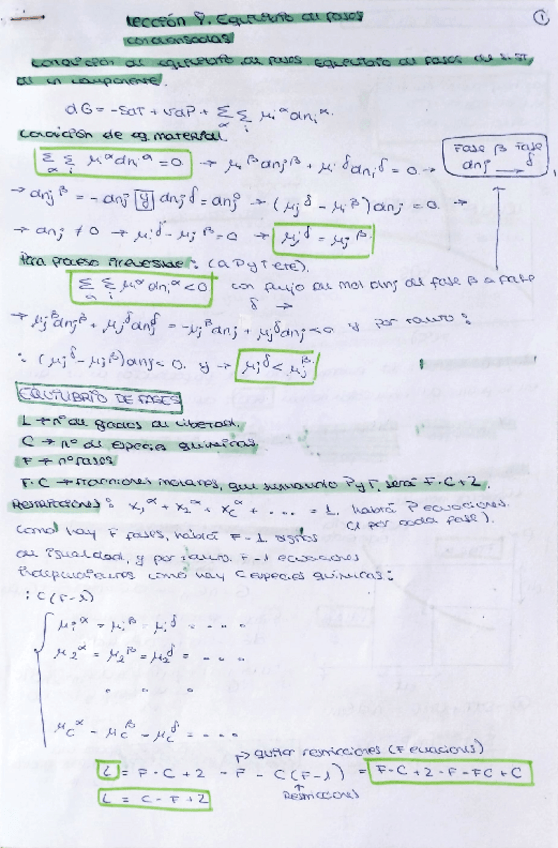 Lección 9. Equilibrio de fases
condensadas
①
Condición de equilibrio de fases. Equilibrio de fases de sist.
de un componente.
dG = -SdT + VdP + Σ_α Σ_i μi^α dni^α.
Condición de eq. material.
Σ_α Σ_i μ^α dni^α = 0 → μj^β dnj^β + μj^δ dnj^δ = 0 →
Fase β Fase δ
dnj →
→ dnj^β = -dnj y dnj^δ = dnj → (μj^δ - μj^β) dnj = 0. →
→ dnj ≠ 0 → μj^δ - μj^β = 0 → μj^δ = μj^β
Para proceso irreversible: (a P y T cte).
Σ_α Σ_i μ^α dni^α < 0 con flujo de mol dnj de fase β a fase
δ →
→ μj^β dnj^β + μj^δ dnj^δ = -μj^β dnj + μj^δ dnj < 0 y por tanto:
∴ (μj^δ - μj^β) dnj < 0. y → μj^δ < μj^β.
EQUILIBRIO DE FASES
L → nº de grados de libertad.
C → nº de especies químicas.
F → nº fases
F·C → fracciones molares, que sumando P y T, será F·C+2.
Restricciones: x1^α + x2^α + xc^α + .... = 1, habrá P ecuaciones.
(1 por cada fase).
Como hay F fases, habrá F-1 signos
de igualdad, y por tanto F-1 ecuaciones
independientes como hay C especies químicas:
: C(F-1)
μ1^α = μ1^β = μ1^δ = ....
μ2^α = μ2^β = μ2^δ = ....
" " "
μc^α = μc^β = μc^δ = ....
→ quitar restricciones (F ecuaciones)
L = F·C + 2 - F - C(F-1) = F·C + 2 - F - FC + C
↑
Restricciones
L = C - F + 2